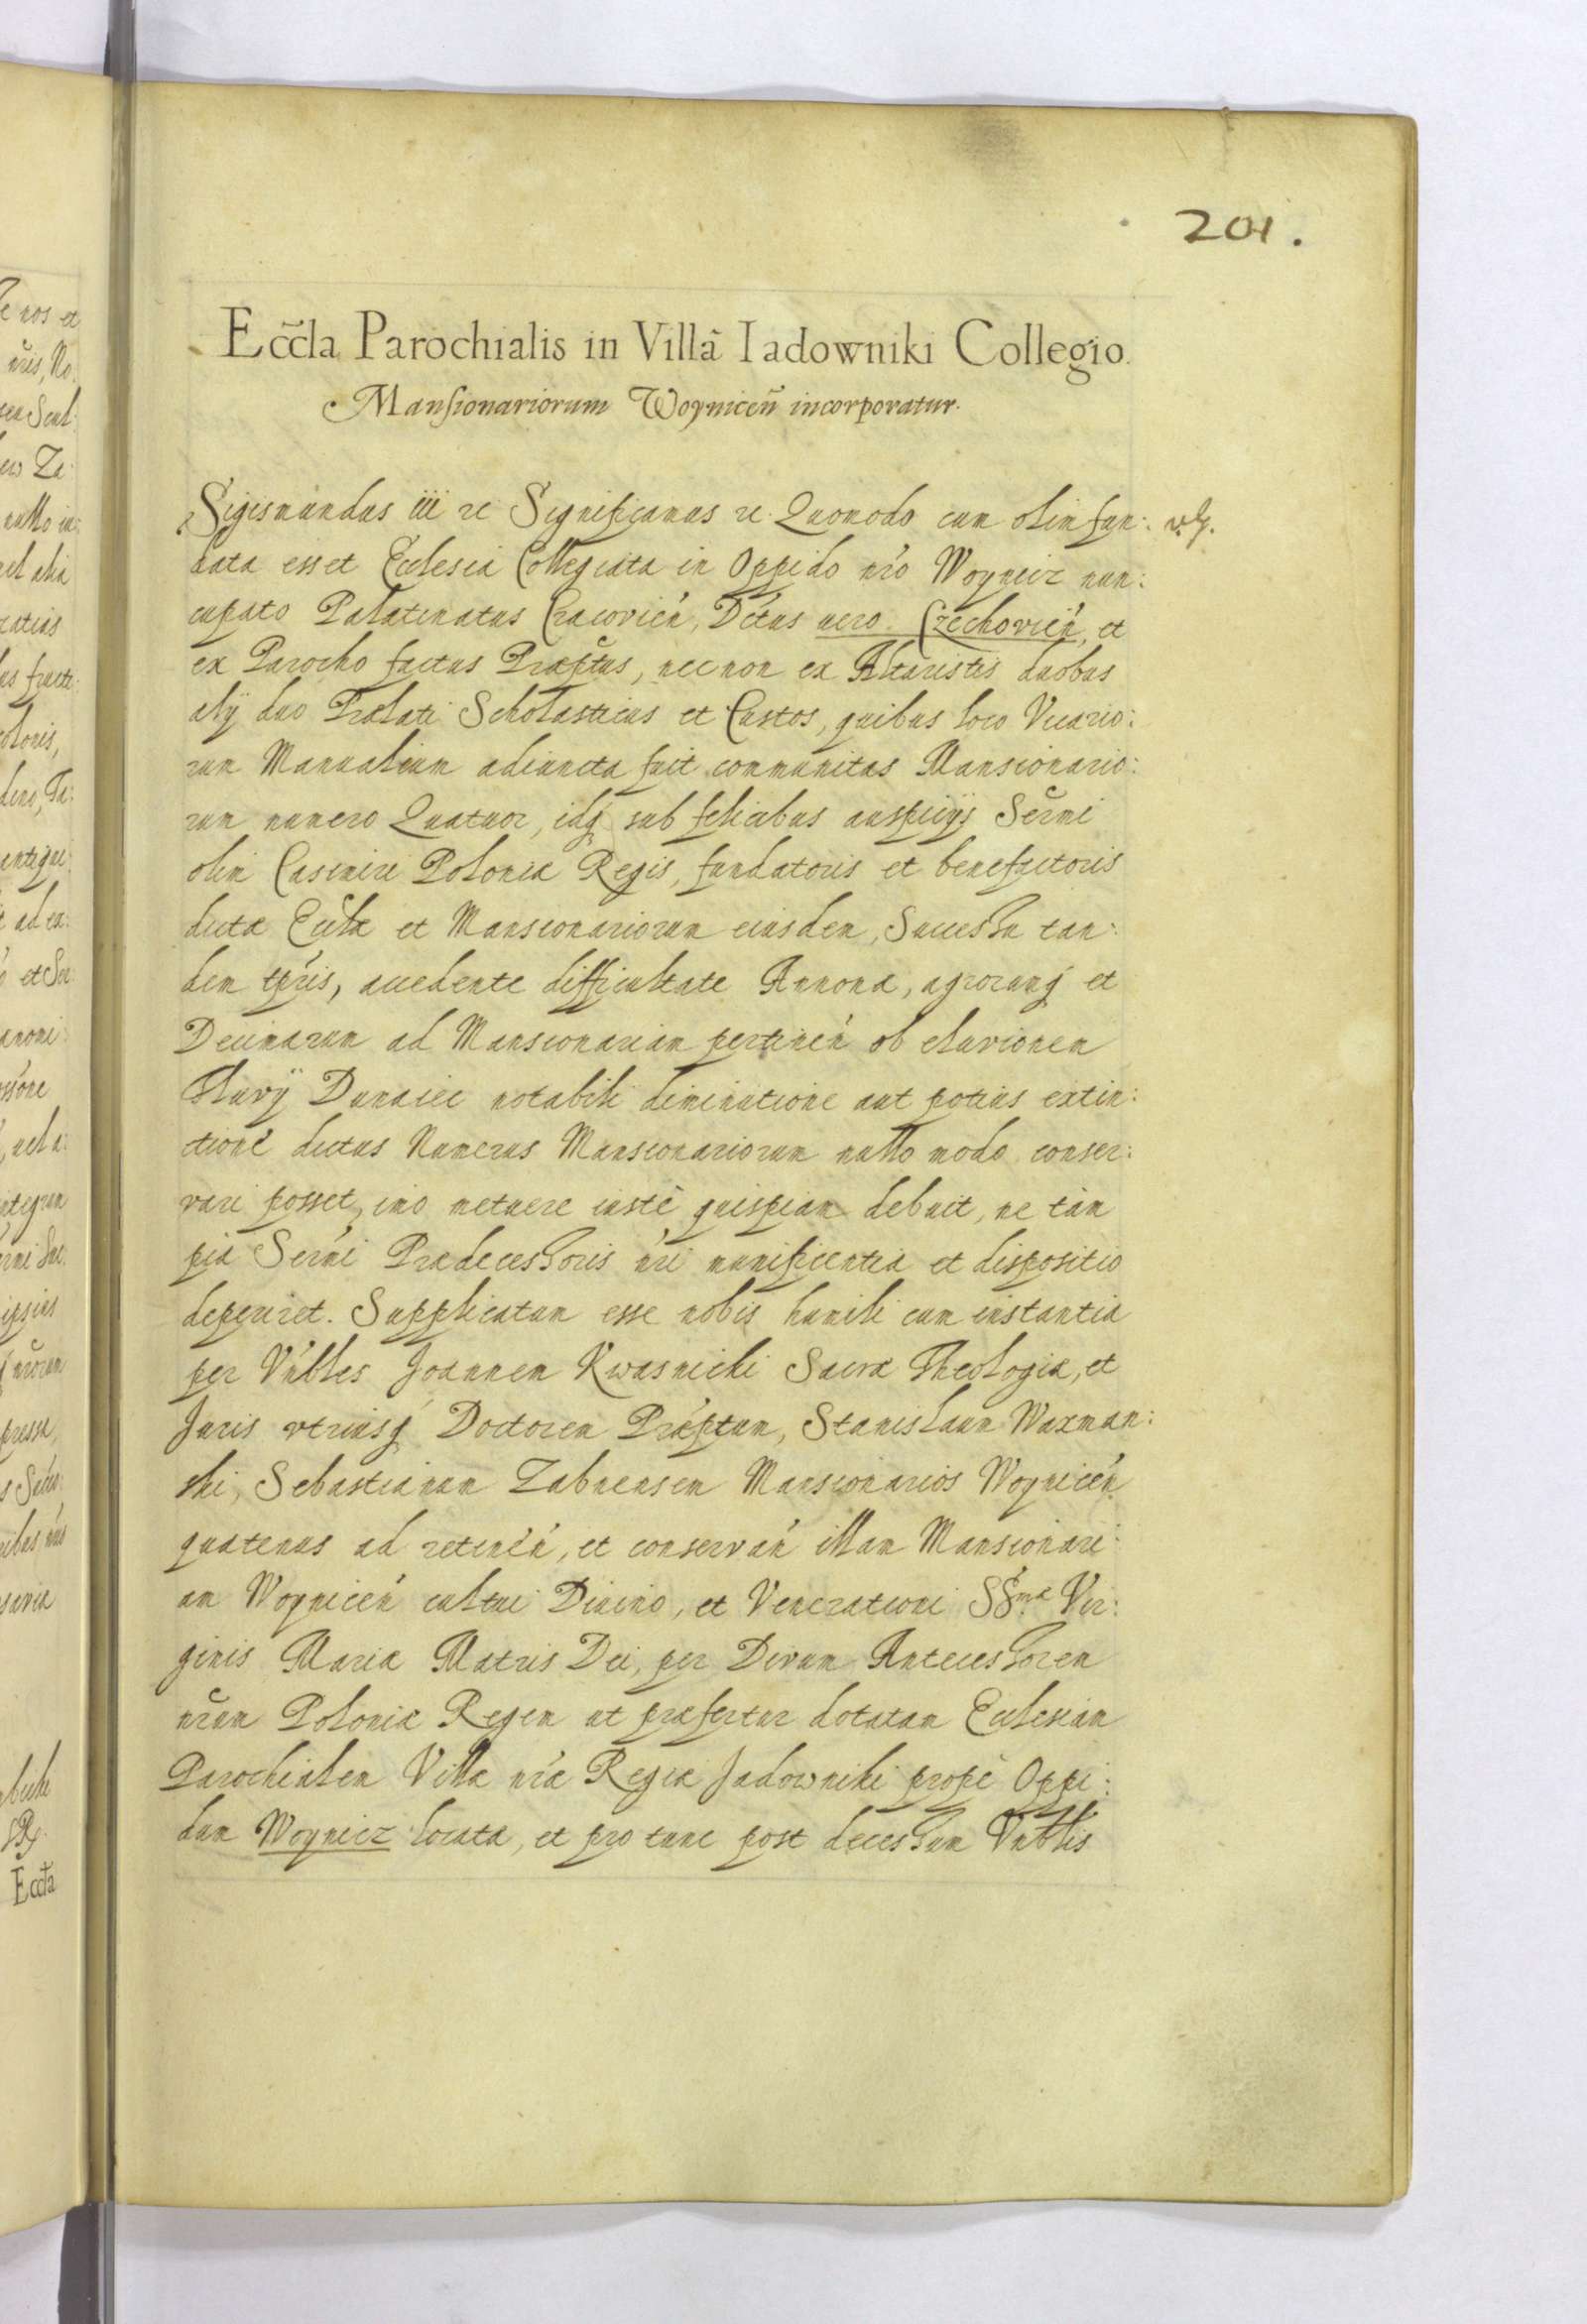 201.
Eccla Parochialis in Villâ Iadowniki Collegio
Mansionariorum Woynicen̄ incorporatur.
Sigismundus iii etc Significamus etc. Quomodo cum olim fun:
data esset Ecclesia Collegiata in Oppido nro Woynicz nun:
cupato Palatinatus Cracovień, Dctus uero Czechovień, et
ex Parocho factus Praeptus, nec non ex Altaristis duobus
alÿ duo Praelati Scholasticus et Custos, quibus loco Vicario:
rum Manualium adiuncta fuit communitas Mansionario:
rum numero Quatuor, idq sub felicibus auspicÿs Sermi
olim Casimiri Poloniae Regis, fundatoris et benefactoris
dictae Eccłae et Mansionariorum eiusdem, Successu tan:
dem tpris, accedente difficultate Annonae, agrorumq et
Decimarum ad Mansionariam pertineń ob eluvionem
Fluvÿ Dunaiec notabili diminutione aut potius extin:
ctione dictus Numerus Mansionariorum nullo modo conser:
vari posset, imo metuere iustè quispiam debuit, ne tàm
pia Sermi Praedecessoris nri munificentia et dispositio
deperiret. Supplicatum esse nobis humili cum instantia
per Vnbłes Joannem Kwasnicki Sacrae Theologiae, et
Juris vtriusq Doctorem Praeptum, Stanislaum Waxman:
ski, Sebastianum Zabnensem Mansionarios Woyniceń
quatenus ad retineń, et conservań illam Mansionari:
am Woyniceń cultui Diuino, et Venerationi SSmae Vir:
ginis Mariae Matris Dei, per Divum Antecessorem
nrum Poloniae Regem ut praefertur dotatam Ecclesiam
Parochialem Villae nrae Regiae Jadowniki propè Oppi:
dum Woynicz locata, et pro tunc post decessum Vnbłis